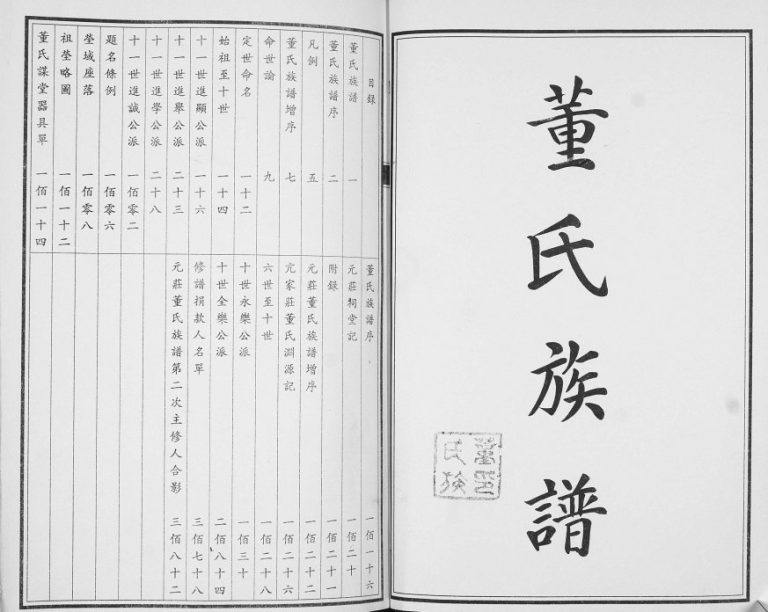 董氏族譜
目録
董氏族譜 一
董氏族譜序 二
凡例 五
董氏族譜增序 七
命世論 九
定世命名 一十二
始祖至十世 一十四
十一世進顯公派 一十六
十一世進舉公派 二十三
十一世進學公派 二十八
十一世進誠公派 一佰零二
題名條例 一佰零六
塋域座落 一佰零八
祖塋略圖 一佰一十二
董氏謀堂器具單 一佰一十四
董氏族譜序 一佰一十六
元莊祠堂記 一佰二十
附録 一佰二十一
元莊董氏族譜增序 一佰二十二
亢家莊董氏淵源記 一佰二十六
六世至十世 一佰二十八
十世永樂公派 一佰三十
十世全樂公派 二佰八十四
修譜捐款人名單 三佰七十八
元莊董氏族譜第二次主修人合影 三佰八十二